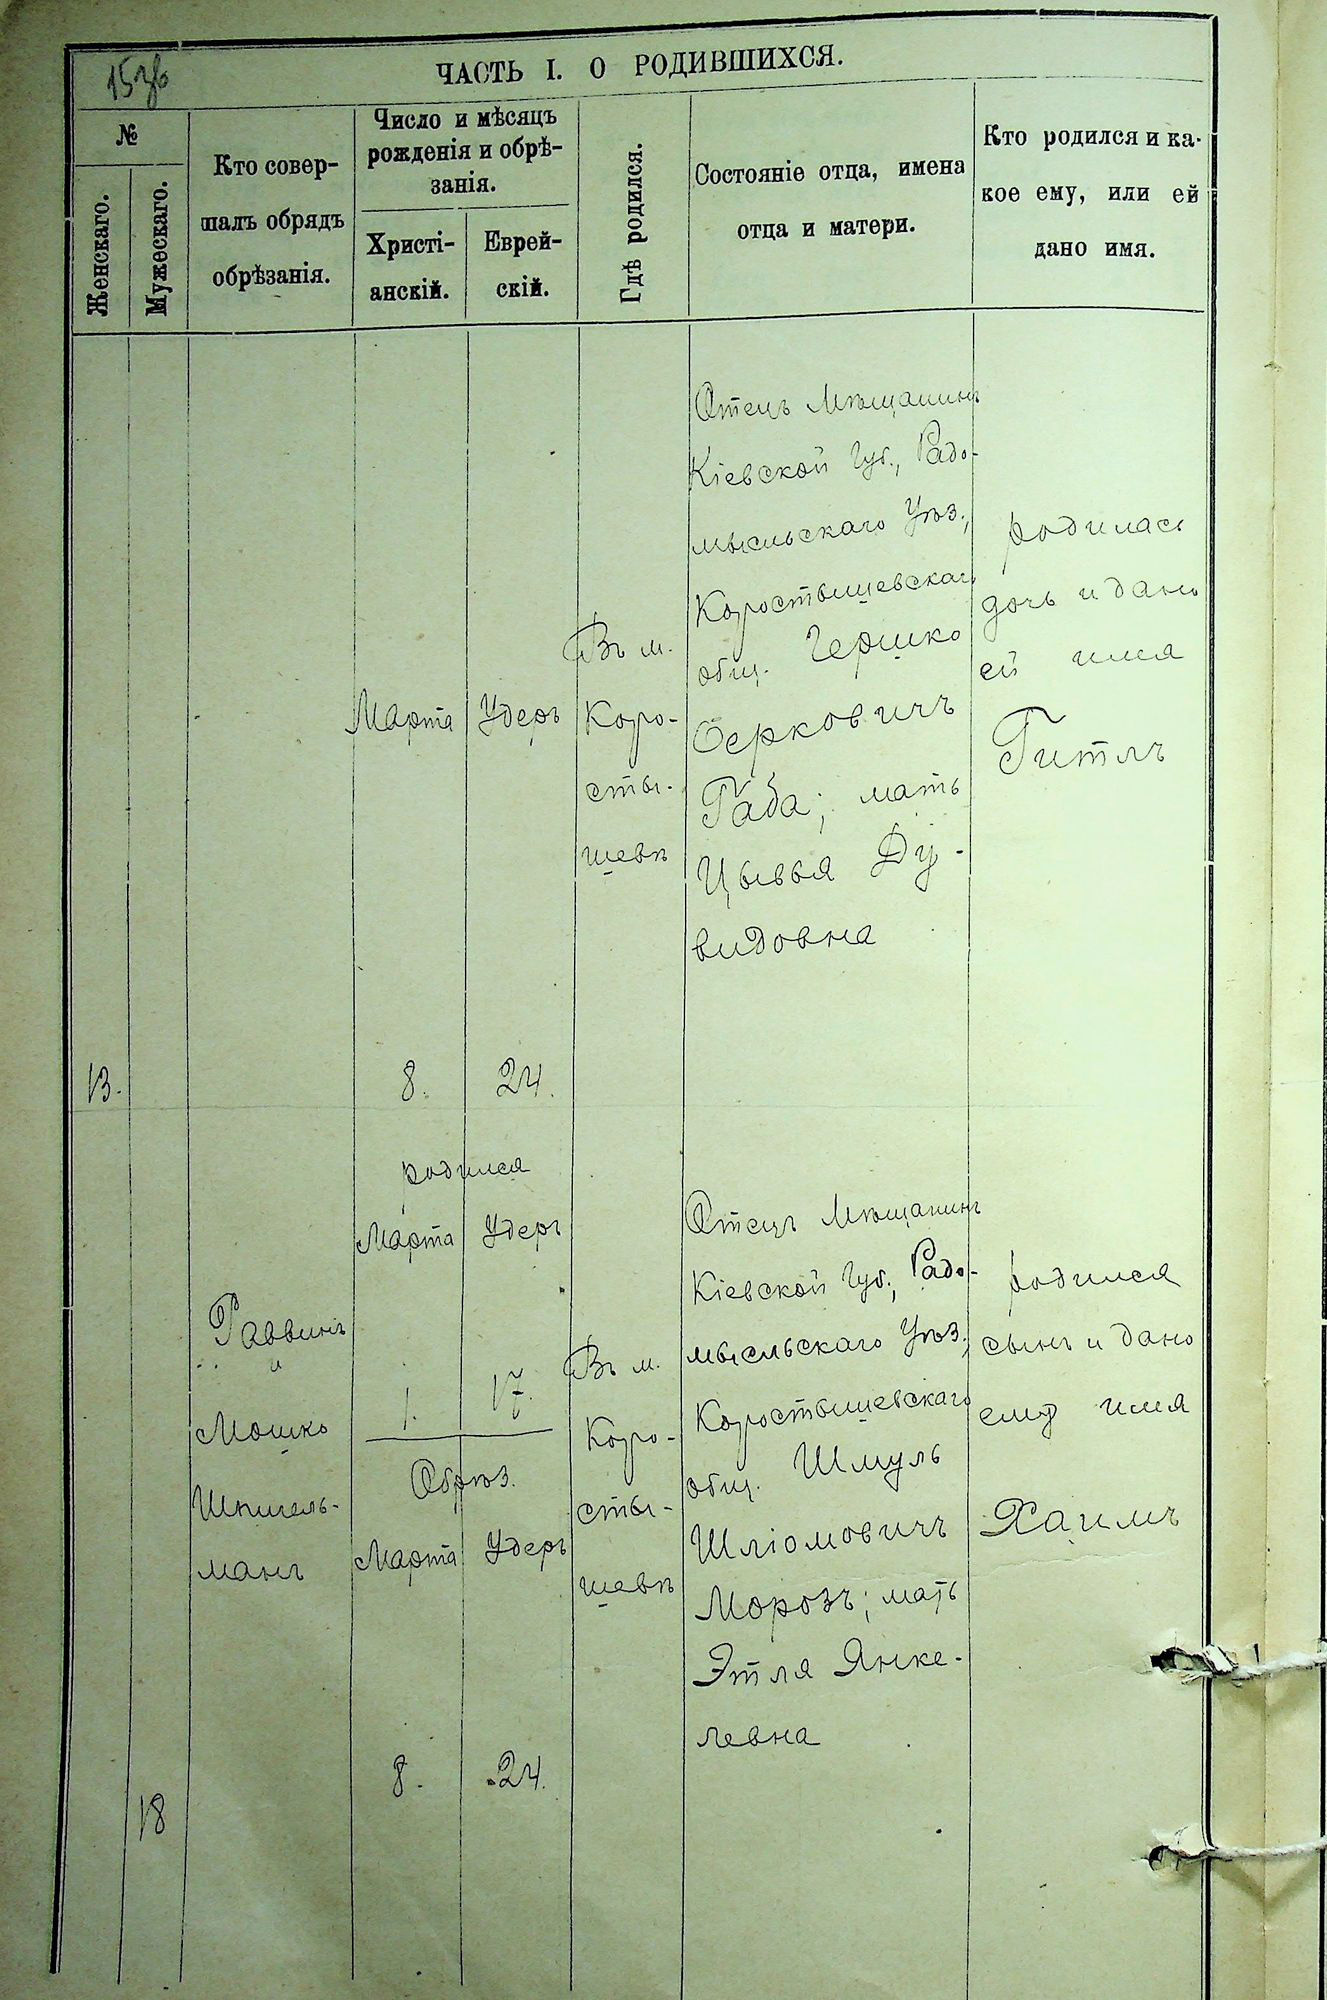 ЧАСТЬ I. О РОДИВШИХСЯ.
№
Женскаго.
Мужескаго.
Кто совер-
шалъ обрядъ
обрѣзанія.
Число и мѣсяцъ
рожденія и обрѣ-
занія.
Христі-
анскій.
Еврей-
скій.
Гдѣ родился.
Состояніе отца, имена
отца и матери.
Кто родился и ка-
кое ему, или ей
дано имя.
13.
Марта
8.
Удеръ
24.
Въ м.
Коро-
сты-
шевѣ
Отецъ Мѣщанинъ
Кіевской Губ., Радо-
мысльскаго Уѣз.,
Коростышевскаго
общ. Гершко
Берковичъ
Габа; мать
Цывья Ду-
видовна
родилась
дочь и дано
ей имя
Гитль
18
Раввинъ
и
Мошко
Шпигель-
манъ
родился
Марта Удеръ
1. 17.
Обрѣз.
Марта Удеръ
8. 24.
Въ м.
Коро-
сты-
шевѣ
Отецъ Мѣщанинъ
Кіевской Губ., Радо-
мысльскаго Уѣз.,
Коростышевскаго
общ. Шмуль
Шліомовичъ
Морозъ; мать
Этля Янке-
левна
родился
сынъ и дано
ему имя
Хаимъ